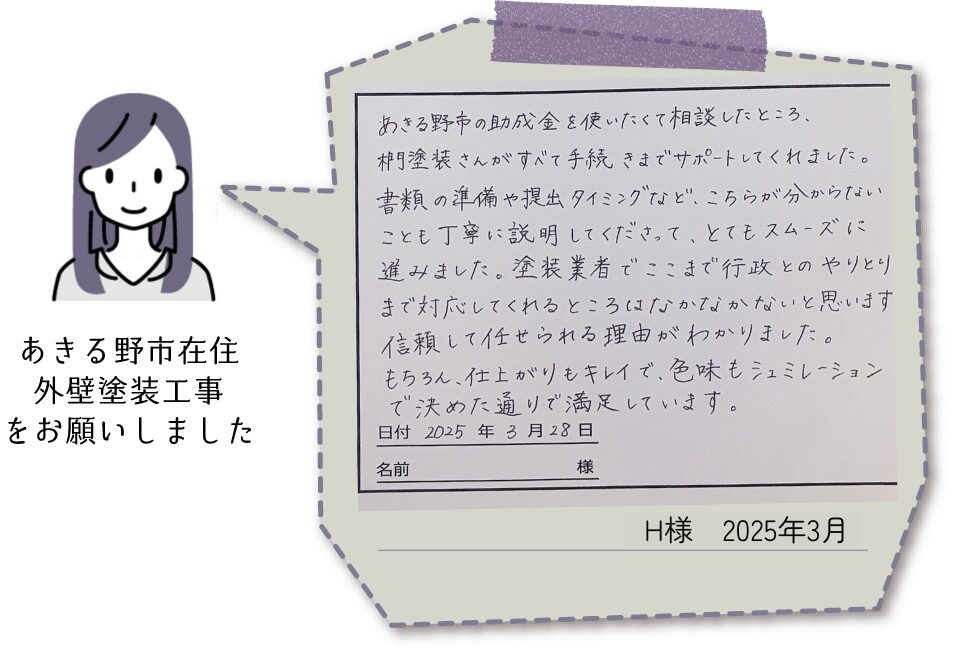 あきる野市の助成金を使いたくて相談したところ、
塗装さんがすべて手続きまでサポートしてくれました。
書類の準備や提出タイミングなど、こちらが分からない
ことも丁寧に説明してくださって、とてもスムーズに
進みました。塗装業者でここまで行政とのやりとり
まで対応してくれるところはなかなかないと思います
信頼して任せられる理由がわかりました。
もちろん、仕上がりもキレイで、色味もシュミレーション
で決めた通りで満足しています。
日付 2025 年 3 月 28 日
名前 様
H様 2025年3月
あきる野市在住
外壁塗装工事
をお願いしました